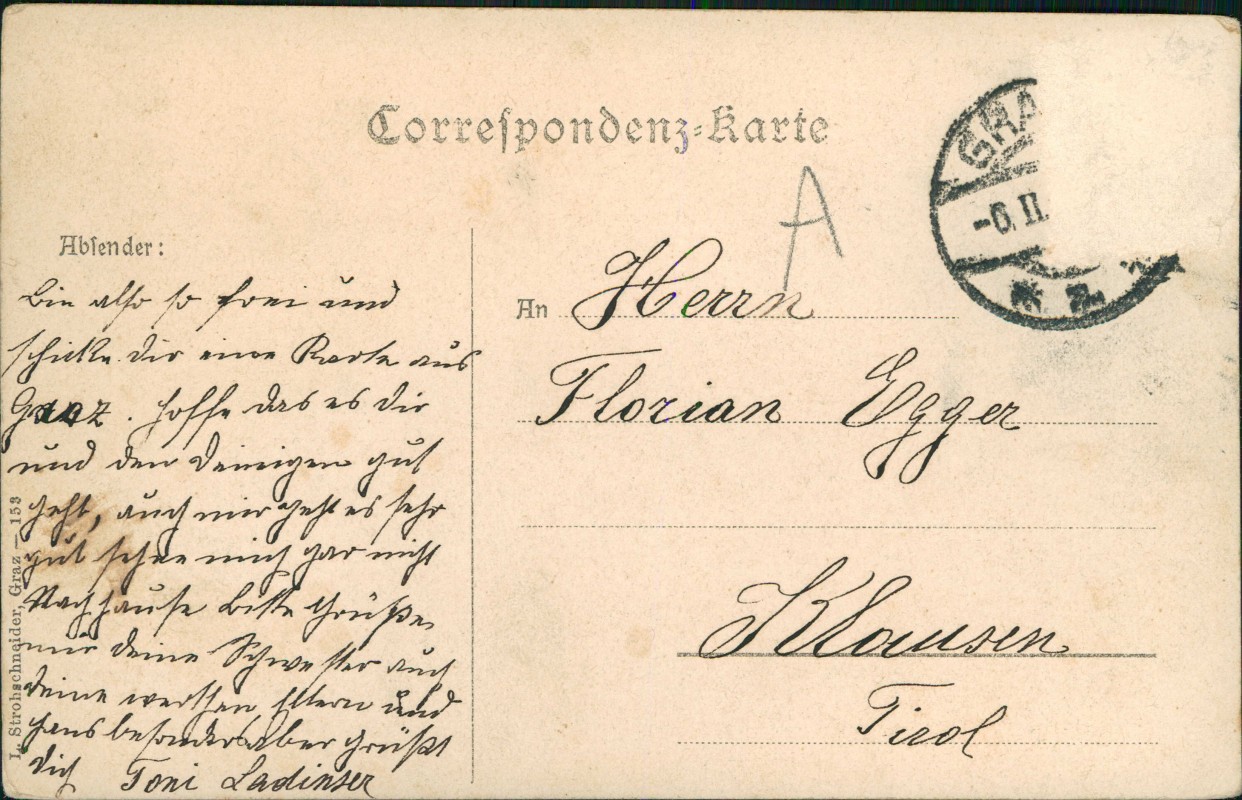 Correspondenz-Karte
GRA
-6.II.
A
Absender:
Bin also so frei und
schicke dir eine Karte aus
Graz. hoffe das es dir
und den deinigen gut
geht, auch mir geht es sehr
gut sehne mich gar nicht
Nachhause bitte Grüße
mir deine Schwester auch
deine werthen Eltern und
Hans besonders aber grüßt
dich Toni Ladinser
An Herrn
Florian Egger
Klausen
Tirol
L. Strohschneider, Graz — 153